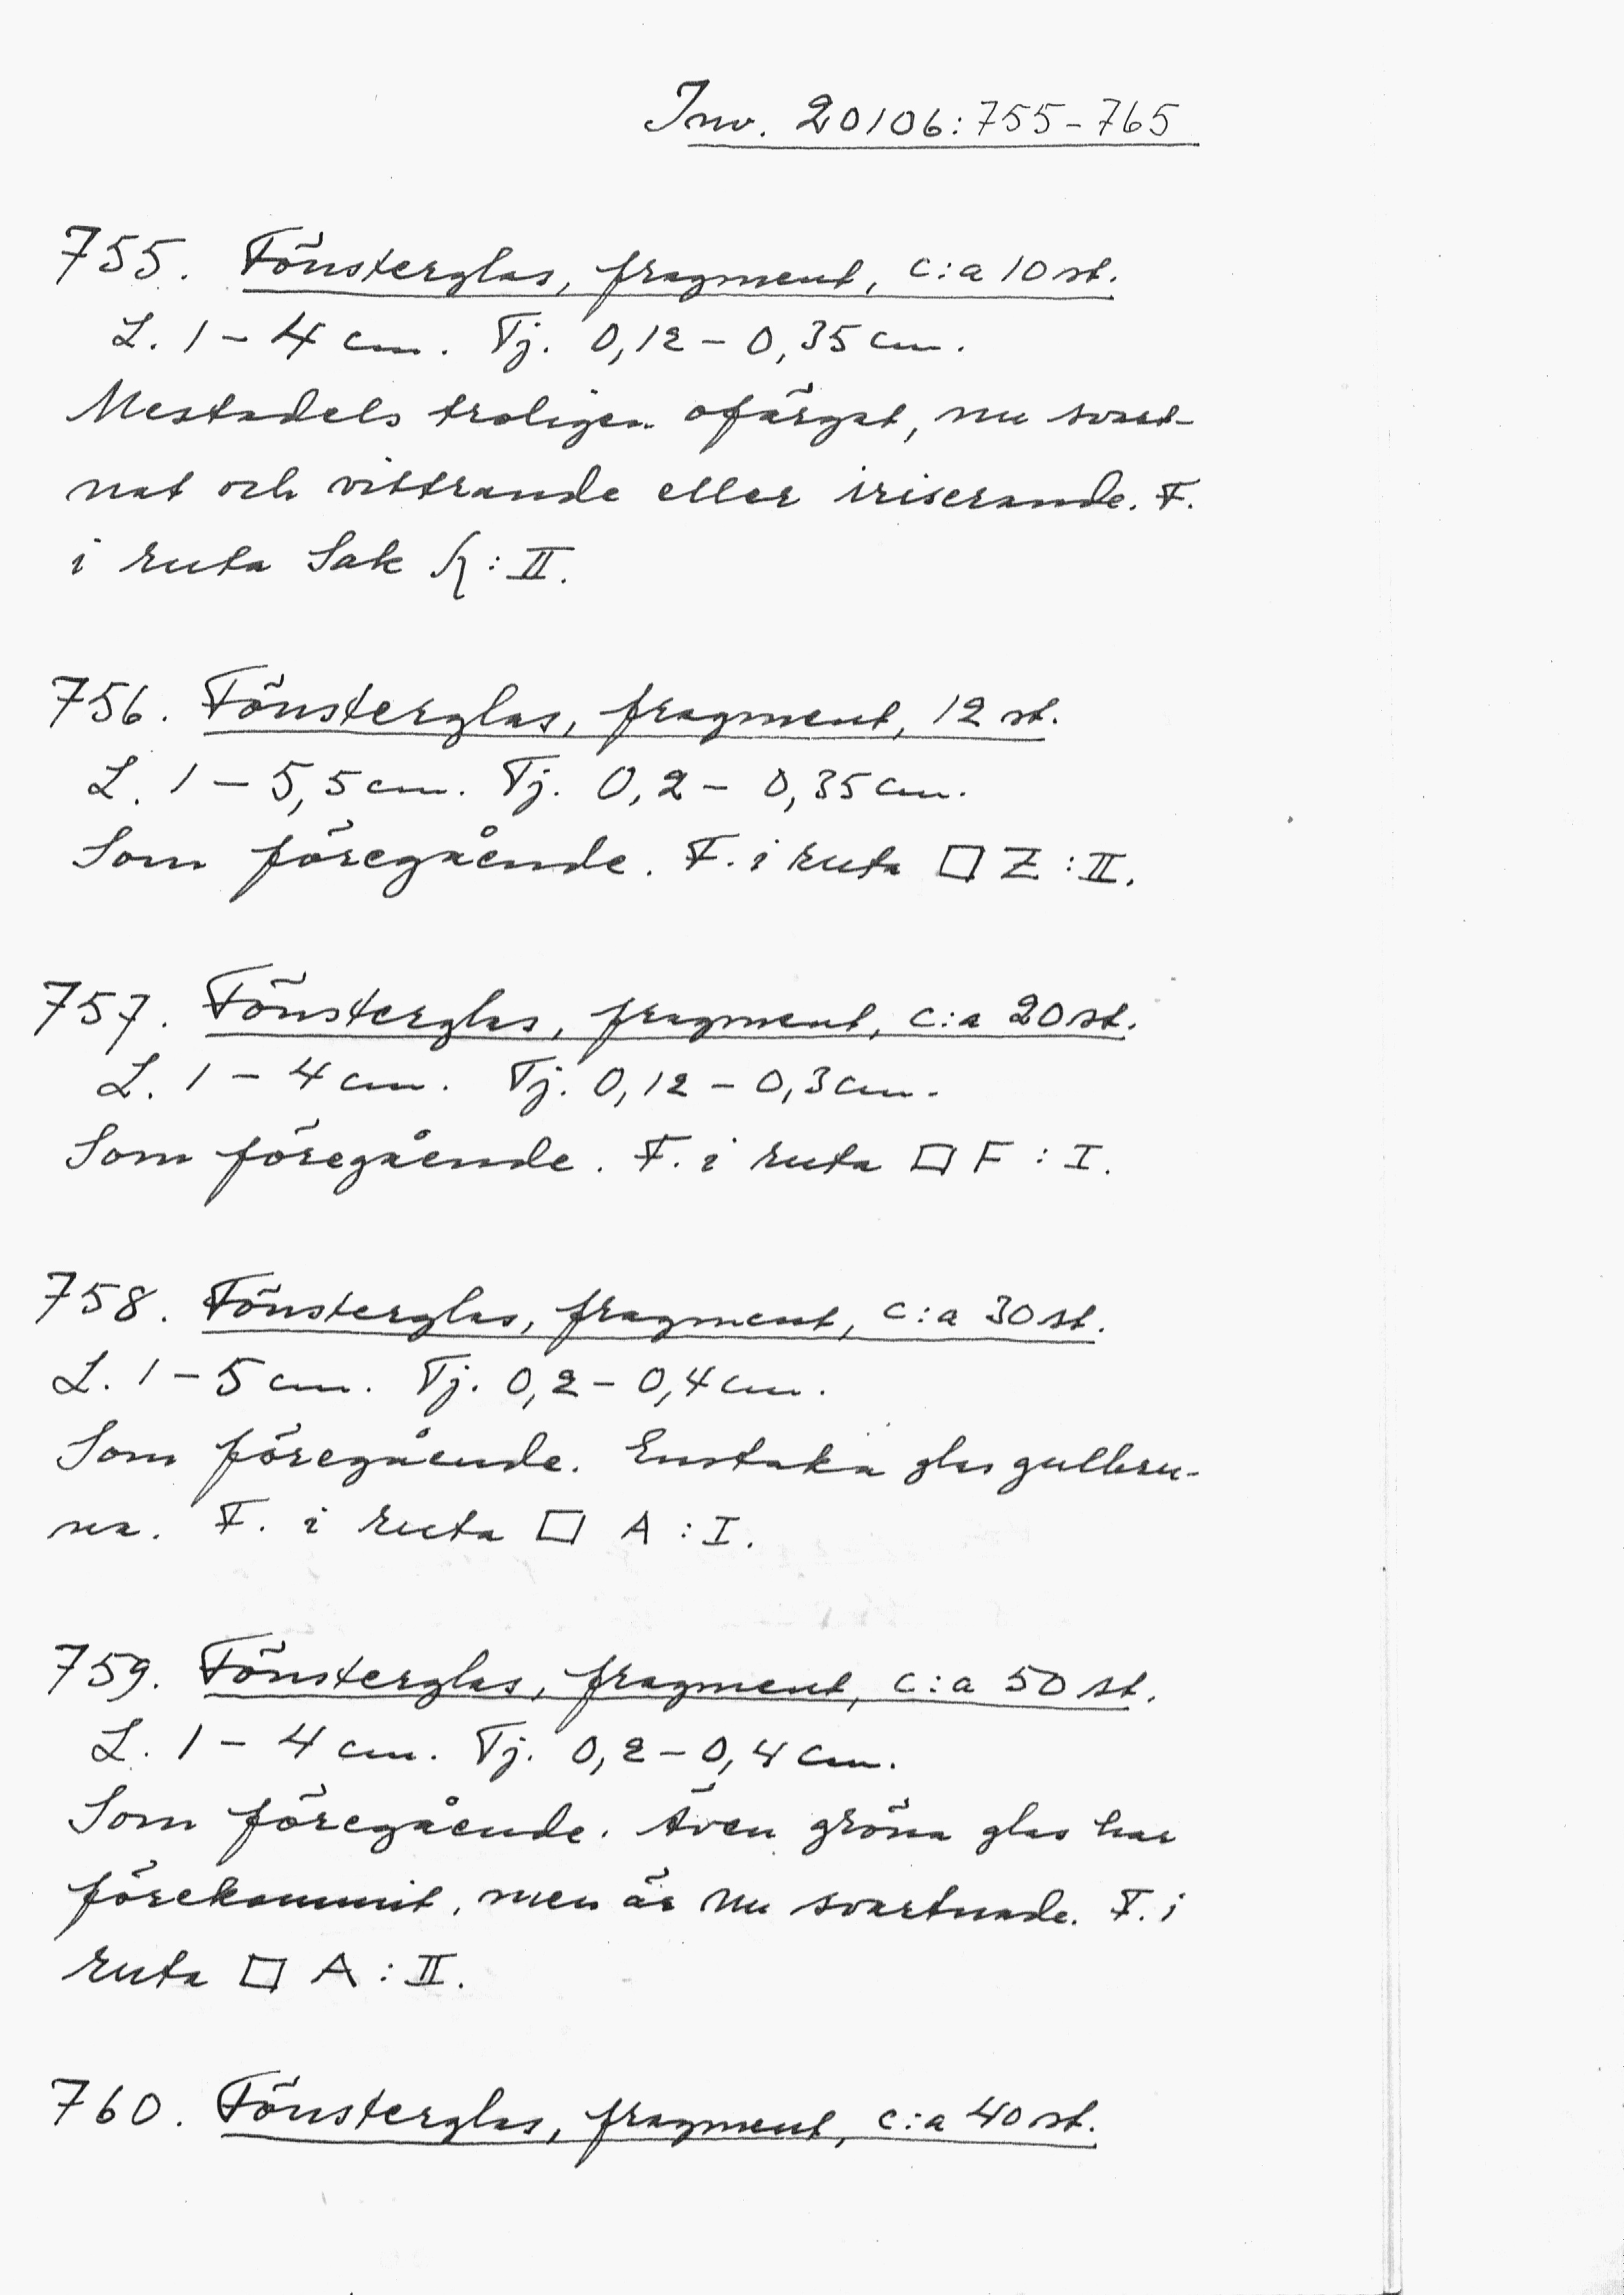 Inv. 20106:755-765
755. Fönsterglas, fragment, c:a 10 st.
L. 1 - 4 cm. Tj. 0,12 - 0,35 cm.
Mestadels troligen ofärgat, nu svart-
nat och vittrande eller iriserande. F.
i ruta Sak R:II.
756. Fönsterglas, fragment, 12 st.
L. 1 - 5,5 cm. Tj. 0,2 - 0,35 cm.
Som föregående. F. i ruta □ Z:II.
757. Fönsterglas, fragment, c:a 20 st.
L. 1 - 4 cm. Tj. 0,12 - 0,3 cm.
Som föregående. F. i ruta □ F:I.
758. Fönsterglas, fragment, c:a 30 st.
L. 1 - 5 cm. Tj. 0,2 - 0,4 cm.
Som föregående. Enstaka glas gulbru-
na. F. i ruta □ A:I.
759. Fönsterglas, fragment, c:a 50 st.
L. 1 - 4 cm. Tj. 0,2 - 0,4 cm.
Som föregående. Även gröna glas har
förekommit, men är nu svartnade. F. i
ruta □ A:II.
760. Fönsterglas, fragment, c:a 40 st.